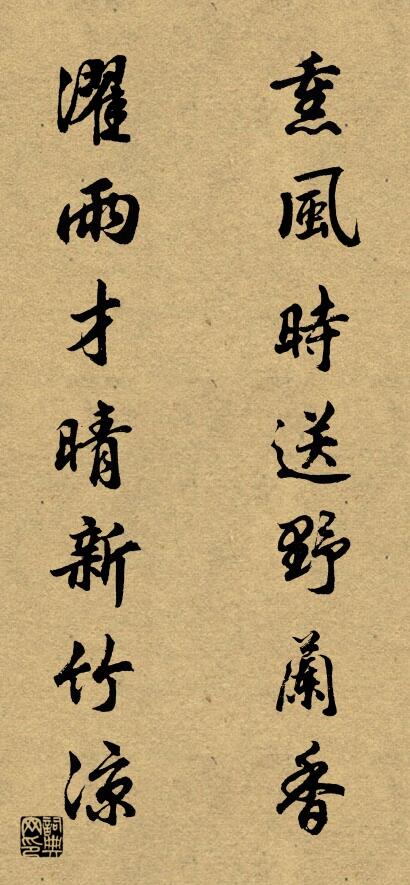 熏風時送野蘭香
濯雨才晴新竹涼
詞典网印